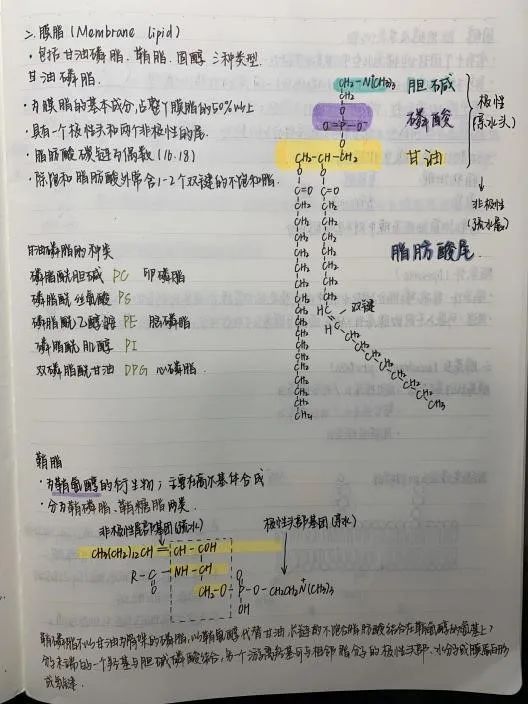 二.膜脂 (Membrane lipid)
·包括甘油磷脂、鞘脂、固醇三种类型.
甘油磷脂.
·为膜脂的基本成分,占整个膜脂的50%以上
·具有一个极性头和两个非极性的尾.
·脂肪酸碳链为偶数(16.18)
·除饱和脂肪酸外常含1-2个双键的不饱和脂.
CH₂-N⁺(CH₃)₃ 胆碱
CH₂
O
O=P-O⁻ 磷酸
O
CH₂-CH-CH₂ 甘油
极性
(亲水头)
非极性
(疏水尾)
脂肪酸尾
O O
C=O C=O
CH₂ CH₂
HC
HC
双键
CH₃
甘油磷脂的种类
磷脂酰胆碱 PC 卵磷脂
磷脂酰丝氨酸 PS
磷脂酰乙醇胺 PE 脑磷脂
磷脂酰肌醇 PI
双磷脂酰甘油 DPG 心磷脂.
鞘脂
·为鞘氨醇的衍生物;主要在高尔基体合成
·分为鞘磷脂、鞘糖脂两类.
非极性尾部基团(疏水) 极性头部基团(亲水)
CH₃(CH₂)₁₂CH=CH-COH
R-C-NH-CH
O
CH₂-O-P-O-CH₂CH₂N⁺(CH₃)₃
O
OH
鞘磷脂不以甘油为骨架的磷脂,以鞘氨醇代替甘油,长链的不饱和脂肪酸结合在鞘氨醇的氨基上;
分子末端的一个羟基与胆碱磷酸结合,另一个游离羟基可与相邻脂分子的极性头部、水分子或膜蛋白形
成氢键.